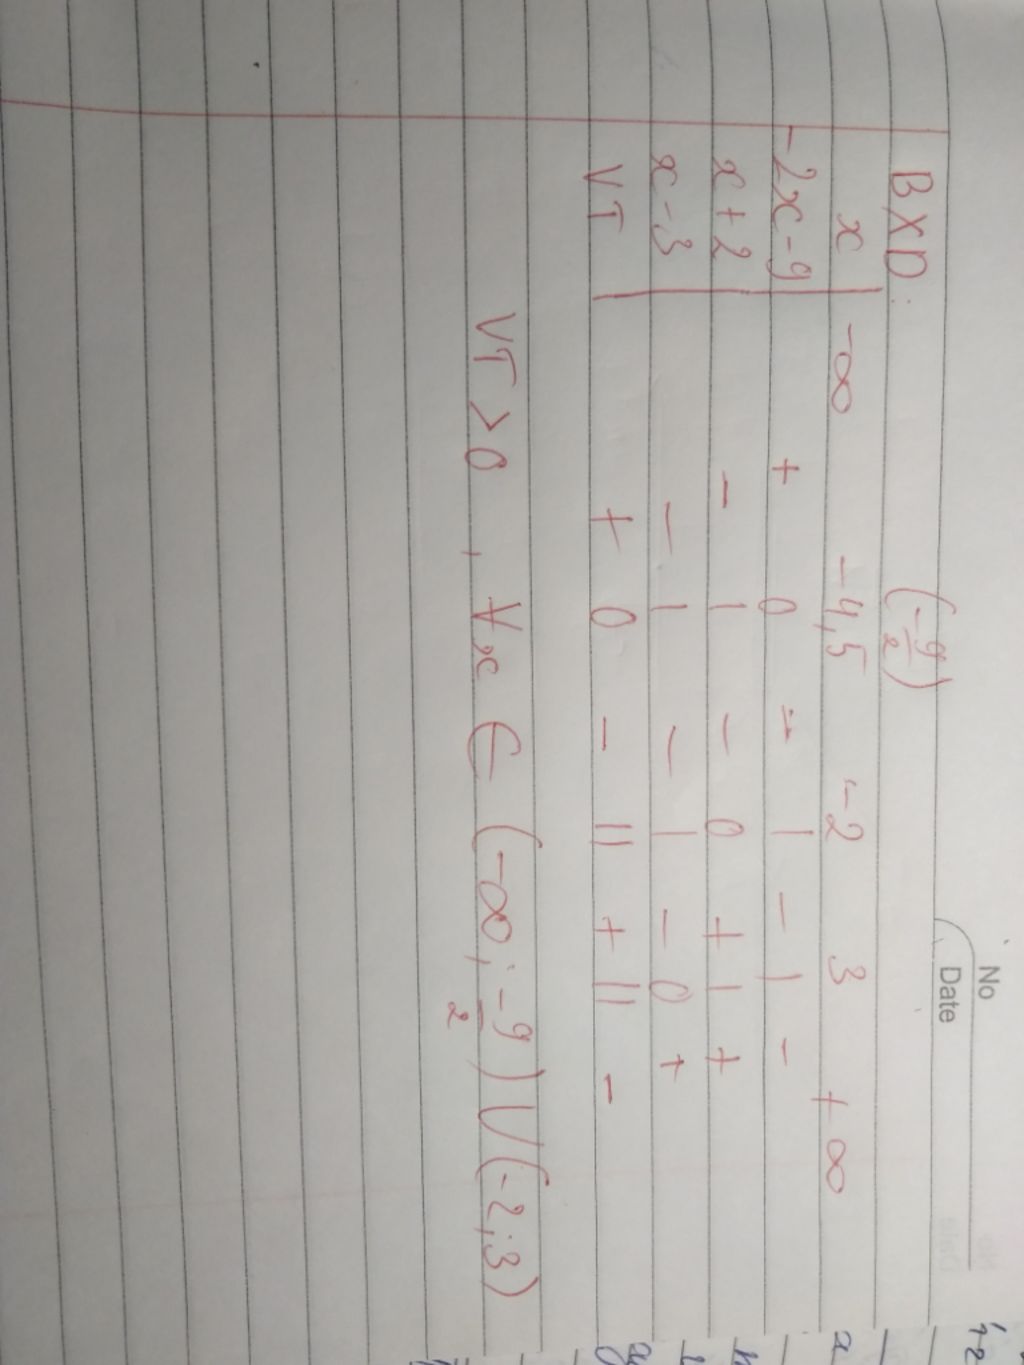 No
Date
BXD: (-9/2)
x -∞ -4,5 -2 3 +∞
-2x-9 + 0 - | - | -
x+2 - | - 0 + | +
x-3 - | - | - 0 +
VT + 0 - || + || -
VT > 0 , ∀x ∈ (-∞; -9/2) ∪ (-2; 3)